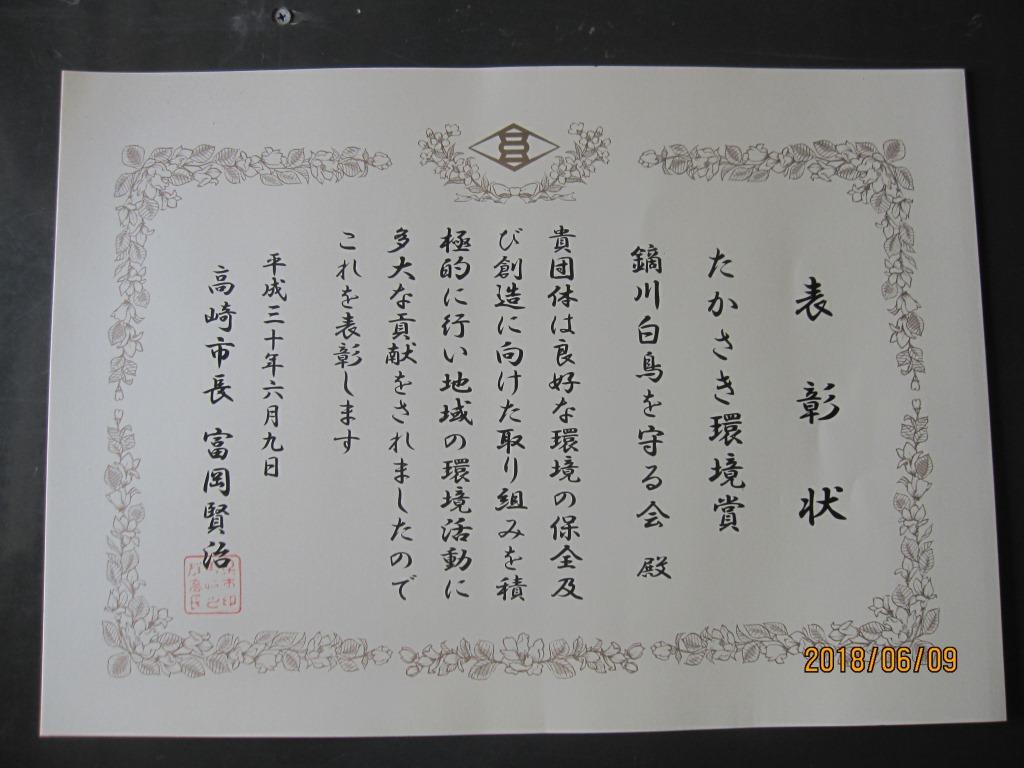 表彰状
たかさき環境賞
鏑川白鳥を守る会 殿
貴団体は良好な環境の保全及
び創造に向けた取り組みを積
極的に行い地域の環境活動に
多大な貢献をされましたので
これを表彰します
平成三十年六月九日
高崎市長 富岡賢治
2018/06/09